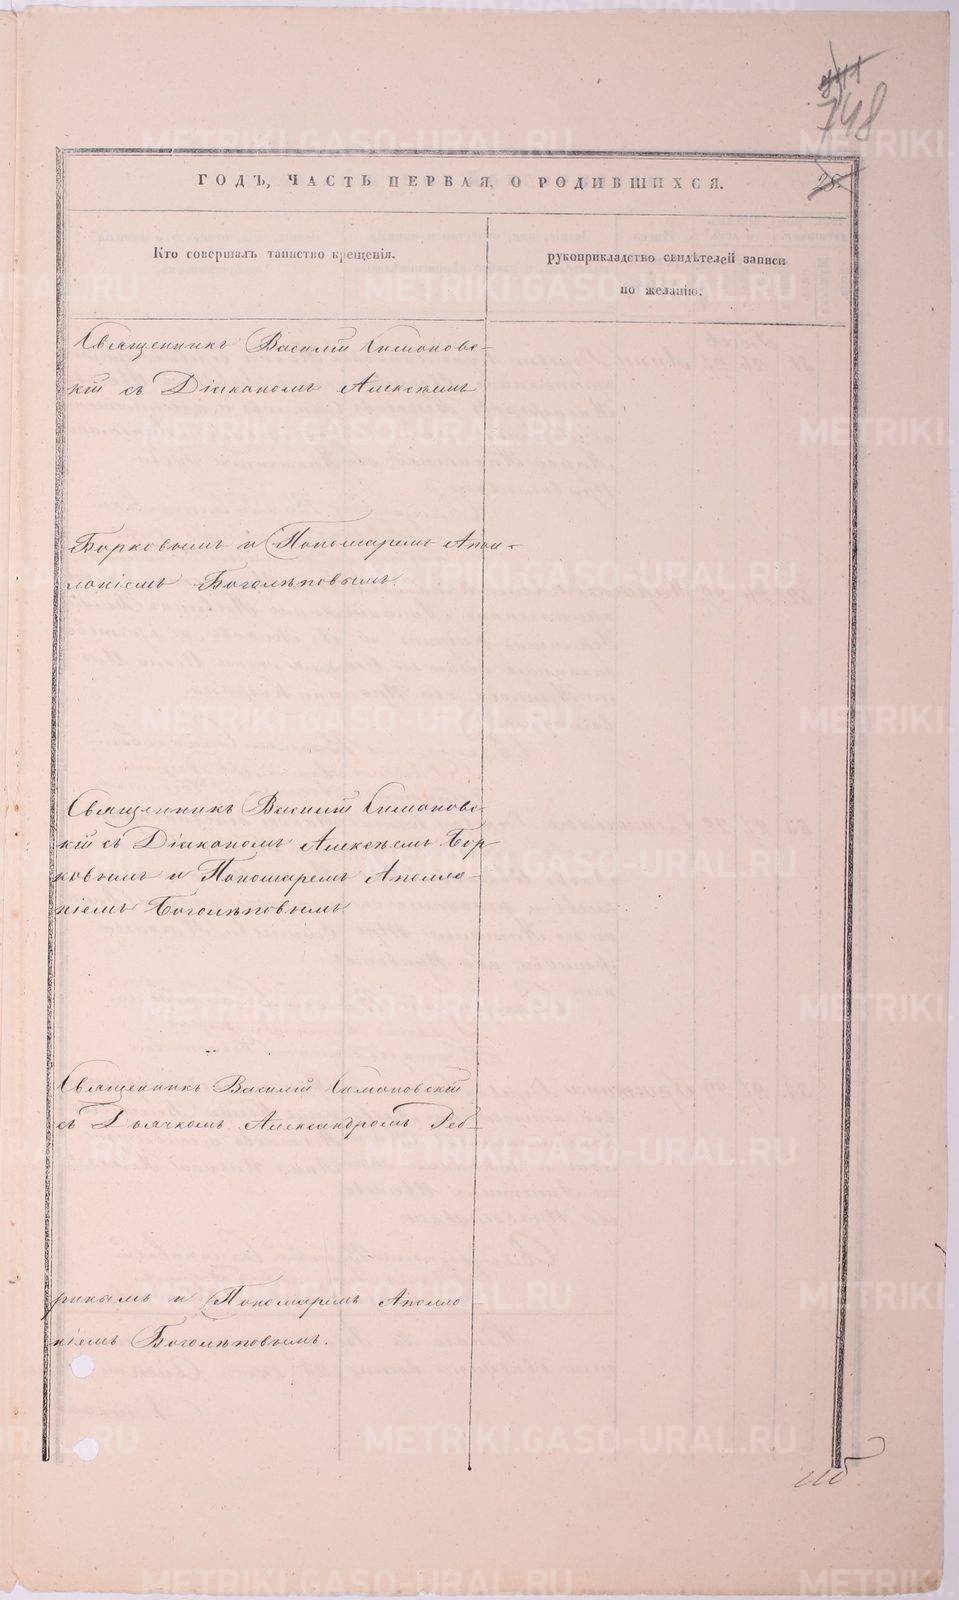 748
ГОДЪ, ЧАСТЬ ПЕРВАЯ, О РОДИВШИХСЯ.
28.
Кто совершалъ таинство крещенія.
рукоприкладство свидѣтелей записи
по желанію.
Священникъ Василій Симановс-
кій съ Діакономъ Алексѣемъ
Борковымъ и Пономаремъ Апол-
лоніемъ Боголѣповымъ
Священникъ Василій Симановс-
кій съ Діакономъ Алексѣемъ Бор-
ковымъ и Пономаремъ Аполло-
ніемъ Боголѣповымъ
Священникъ Василій Симановскій
съ Дьячкомъ Александромъ Реб-
ринымъ и Пономаремъ Аполло
ніемъ Боголѣповымъ.
METRIKI.GASO-URAL.RU